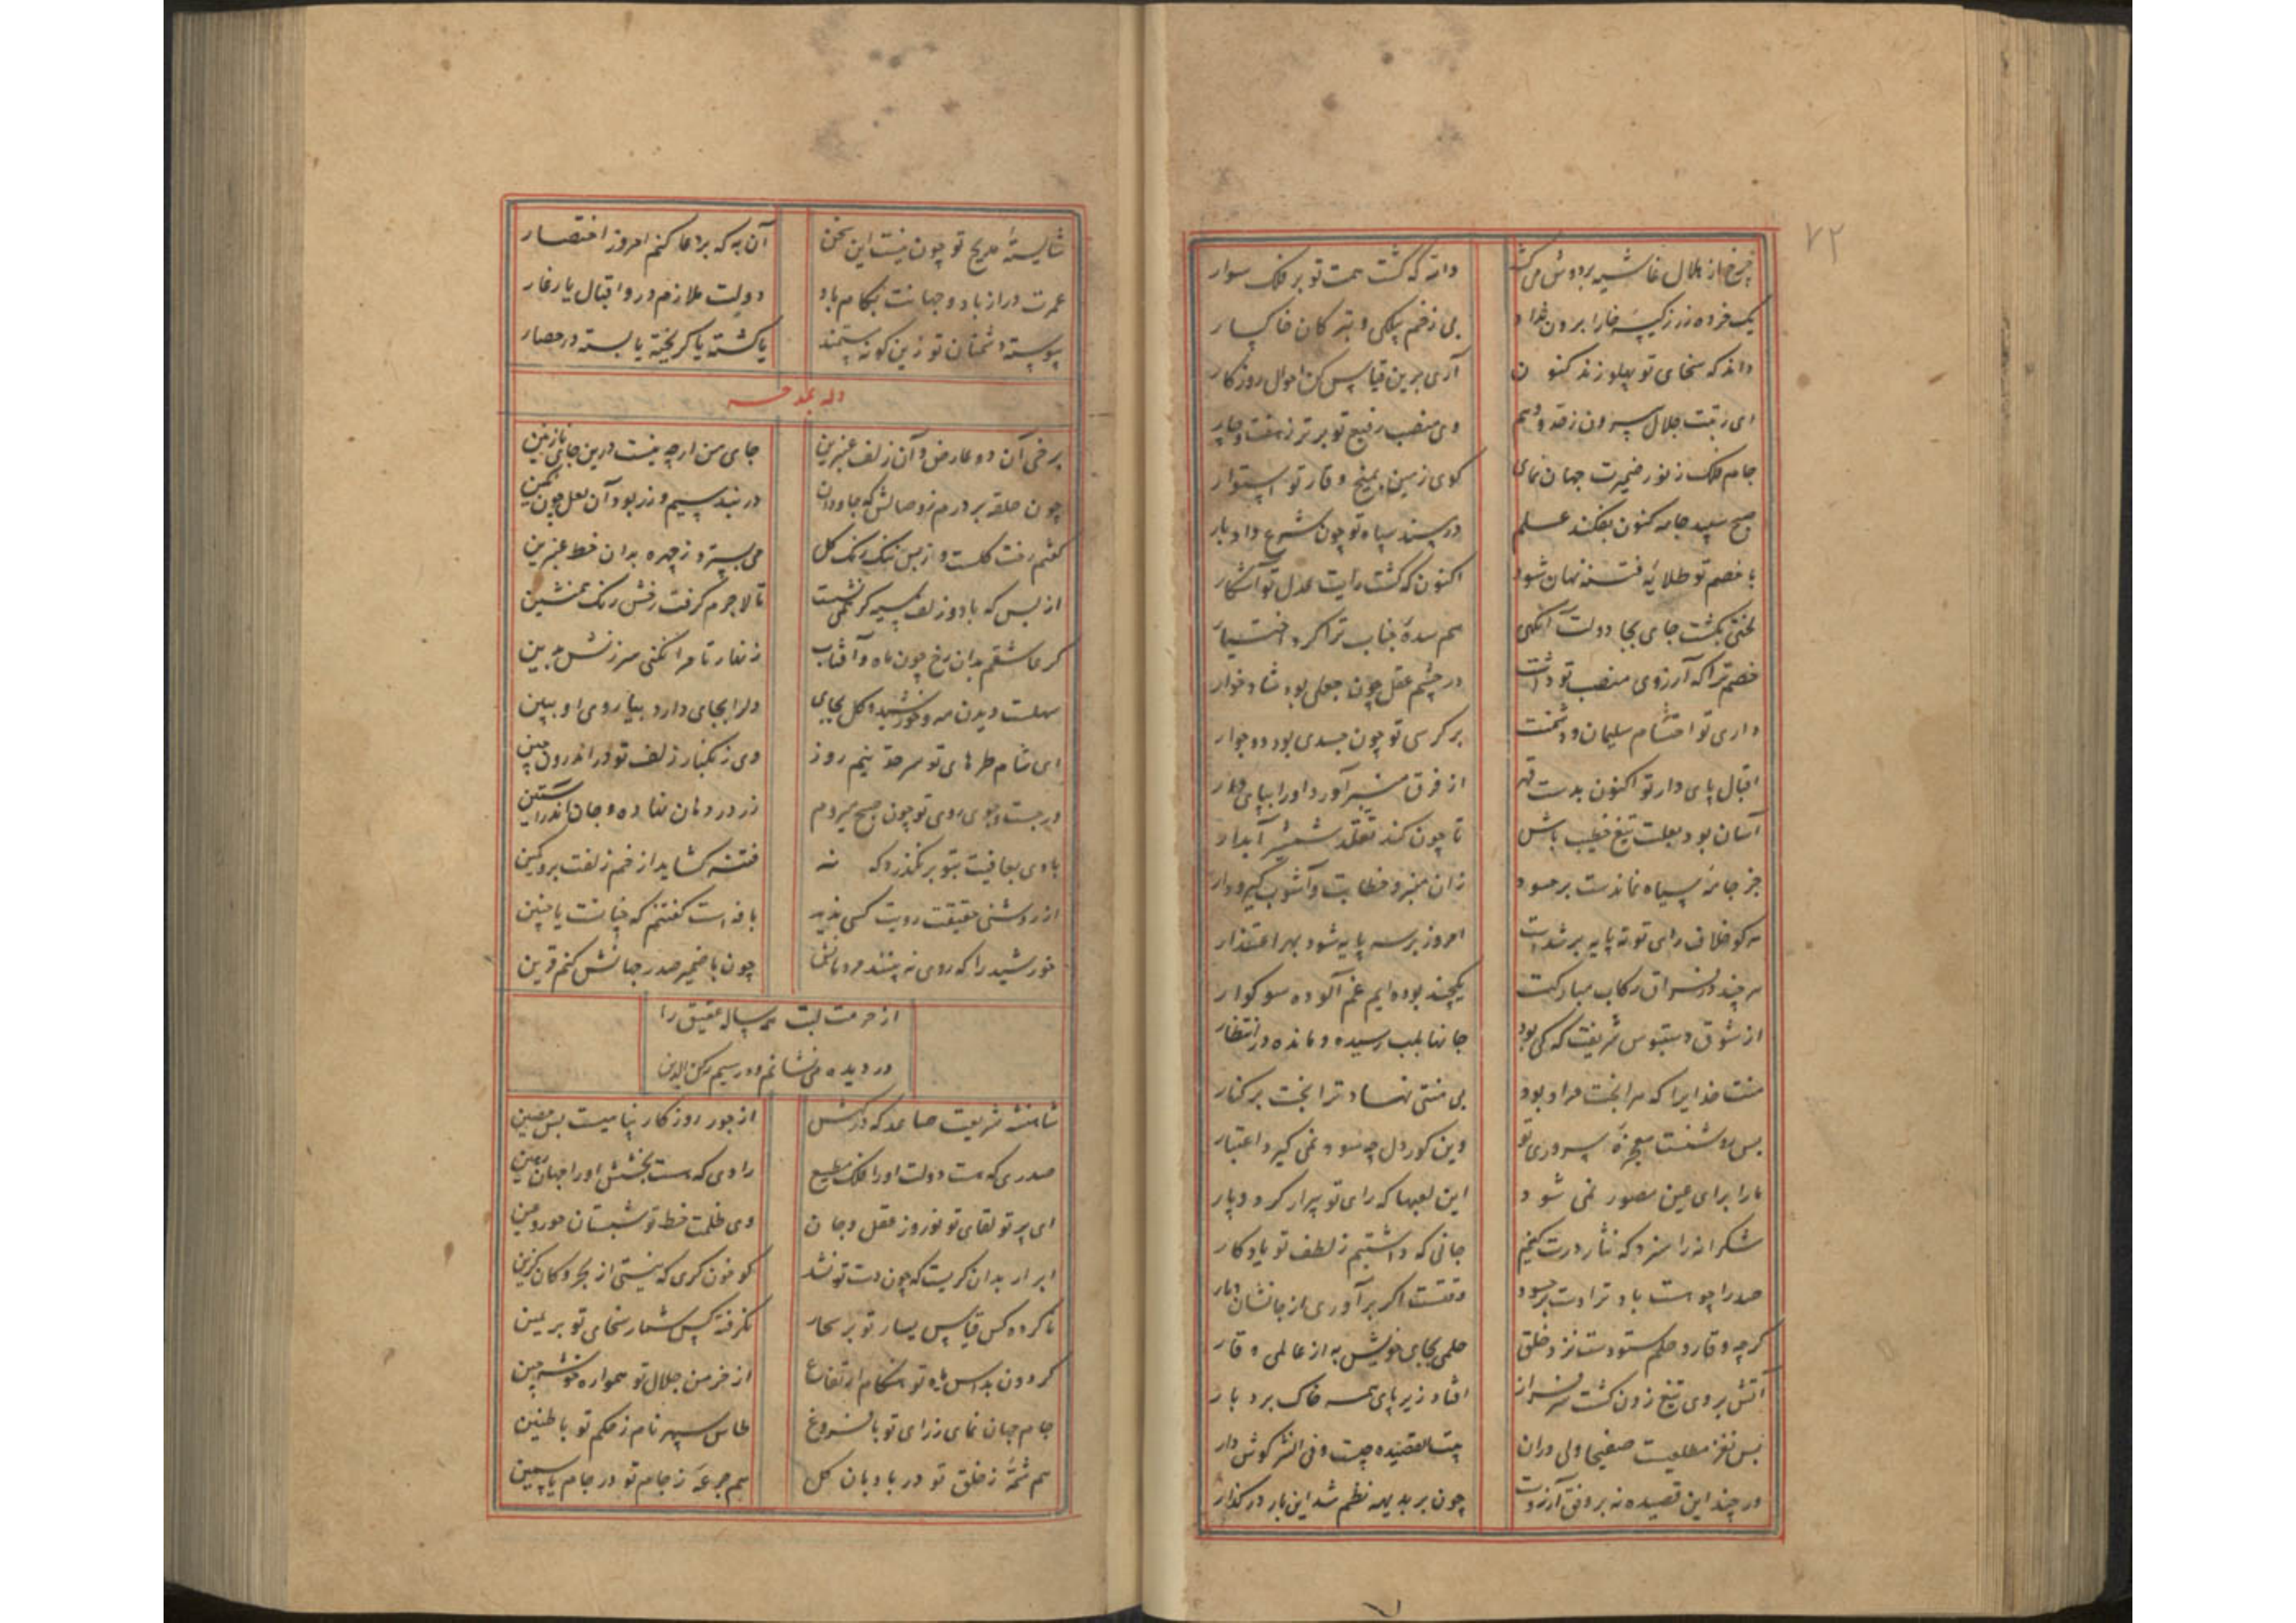 ۷۲
چرخ از هلال غاشیه بر دوش می کشد
داند که گشت همت تو بر فلک سوار
یک خرده زر ز کیسه خارا برون نداد
بی زخم پتکی و تبر کان خاکسار
داند که سخای تو پهلو زند کنون
آری برین قیاس کن احوال روزکار
ای رتبت جلال برون ز قد و هم
وی منصب رفیع تو برتر ز هفت و چار
جام فلک ز نور ضمیرت جهان نمای
کوی زمین بمیخ وقار تو استوار
صبح سپید جامه کنون بفکند علم
در پسند سپاه تو چون شرع داد بار
با خصم تو طلایه فتنه نهان شود
اکنون که گشت رایت عدل تو آشکار
لختی بگشت جای بجا دولت آنگهی
هم سده جناب ترا کرد اختیار
خصم ترا که آرزوی منصب تو داشت
در چشم عقل چون جعلی بود شاد خوار
داری تو احتشام سلیمان و دشمنت
بر کرسی تو چون جسدی بود دو خوار
اقبال پای دار تو اکنون بدست قهر
از فرق منبر آورد او را بپای دار
آسان بود بعلت تیغ خطیب باش
تا چون کند تقلد شمشیر آبدار
جز جامه سیاه نماندست بر حسود
زان منبر و خطابت و آشوب گیر و دار
هر کو خلاف رای تو نه پایه بر شدست
امروز بر سه پایه شود بهر اعتذار
هر چند در فراق رکاب مبارکت
یکچند بوده ایم غم آلوده سوکوار
از شوق دستبوس شریفت که کی بود
جانها بلب رسیده و مانده در انتظار
منت خدایرا که هر آنچت مراد بود
بی منتی نهاد ترا بخت بر کنار
بس روشنست معجزه سروری تو
وین کور دل چه سود نمی گیرد اعتبار
ما را برای عین مصور نمی شود
این لعبها که رای تو پیرار کرد و پار
شکرانه را سزد که نثار درت کنیم
جانی که داشتیم ز لطف تو یادکار
صدرا چو هست باد ترا دست بر حسود
وقتست اگر بر آوری از جانشان دمار
گرچه وقار و حلم ستودست نزد خلق
حلمی بجای خویش به از عالمی وقار
آتش بروی تیغ زدن گشت سرفراز
افتاد زیر پای همه خاک بردبار
بس نغز مطلعیست صفیحا ولی در آن
بیت القصیده چیست و فی النشر گوش دار
هر چند این قصیده نه بر وفق آرزوست
چون بر بدیهه نظم شد این بار در گذار
شایسته مدیح تو چون نیست این سخن
آن به که بر دعا کنم امروز اختصار
عمرت دراز باد و جهانت بکام باد
دولت ملازم در و اقبال یار غار
پیوسته دشمنان تو زین گونه مستمند
یا کشته یا گریخته یا بسته در حصار
وله یمدحه
برخی آن دو عارض و آن زلف عنبرین
جای من ارچه نیست درین جای نازنین
چون حلقه بر درم ز وصالش که جاودان
در بند سیم و زر بود آن لعل چون نگین
گفتم رخت گلست و از بس ننگ رنگ گل
می بسترد ز چهره بدان خط عنبرین
از بس که با دو زلف سیه گر همی نشست
تا لاجرم گرفت رخش رنگ همنشین
گر عاشقم بدان رخ چون ماه و آفتاب
زنهار تا مرا نکنی سرزنش بدین
سهلست دیدن مه و خورشید و گل بجای
دل را بجای دارد بیا روی او ببین
ای شام طره های تو سرحد نیم روز
وی زنگبار زلف تو در اندرون چین
در جست و جوی روی تو چون صبح میزدم
زر در دهان نهاده و جان اندر آستین
بادی بعافیت بتو بر نگذرد که نه
فتنه گشاید از خم زلفت برو کمین
از روشنی حقیقت رویت کسی ندید
یافه است گفتنم که چنانست یا چنین
خورشید را که روی نه بینند مردمانش
چون با ضمیر صدر جهانش کنم قرین
از حرمت لبت همه ساله عقیق را
در دیده می نشانم و در سیم رکن الدین
شاهنشه شریعت صاعد که درگهش
از جور روزکار پناهیست بس حصین
صدری که هست دولت او را فلک مطیع
رادی که هست بخشش او را جهان رهین
ای پرتو لقای تو نوروز عقل و جان
وی ظلمت خط تو شبستان حور و عین
ابر ار بدان گریست که چون دست تو نشد
کو خون گری که نیستی از بحر و کان گزین
ناکرده کس قیاس یسار تو بر بحار
نگرفته کس شمار سخای تو بر یمین
گردون بداس ماه تو هنگام ارتفاع
از خرمن جلال تو همواره خوشه چین
جام جهان نمای ز رای تو با فروغ
طاس سپهر نام ز حکم تو با طنین
هم شمه ز خلق تو در بادبان گل
هم جرعه ز جام تو در جام یاسمین